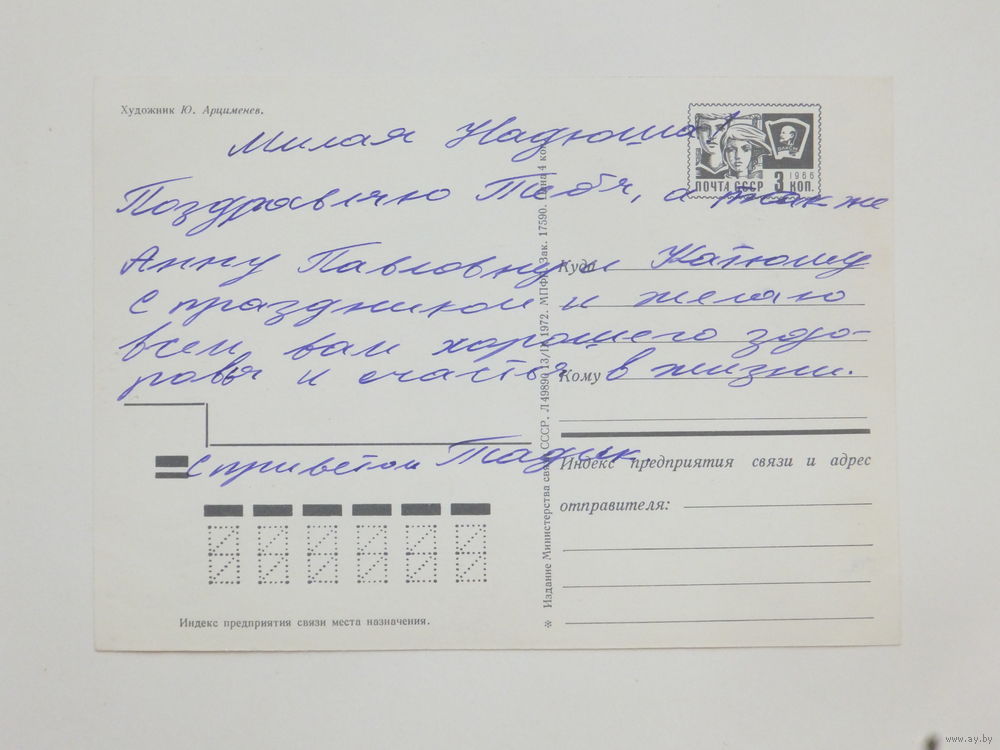 Художник Ю. Арцименев.
Милая Надюша!
Поздравляю Тебя, а также
Анну Павловну и Катюшу
с праздником и желаю
всем вам хорошего здо-
ровья и счастья в жизни.
с приветом Тадик.
1966
ПОЧТА СССР 3 КОП.
Куда
Кому
Индекс предприятия связи и адрес
отправителя:
Индекс предприятия связи места назначения.
Издание Министерства связи СССР. Л49890 13/IX 1972. МПФГ. Зак. 17590. Цена 4 коп.
www.ay.by